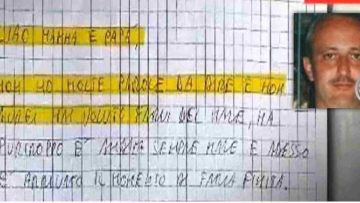 CIAO MAMMA E PAPÀ,
NON HO MOLTE PAROLE DA DIRE E NON
VOLEVO FARVI DEL MALE, MA
PURTROPPO È ANDATA SEMPRE MALE E ADESSO
È ARRIVATO IL MOMENTO DI FARLA FINITA.